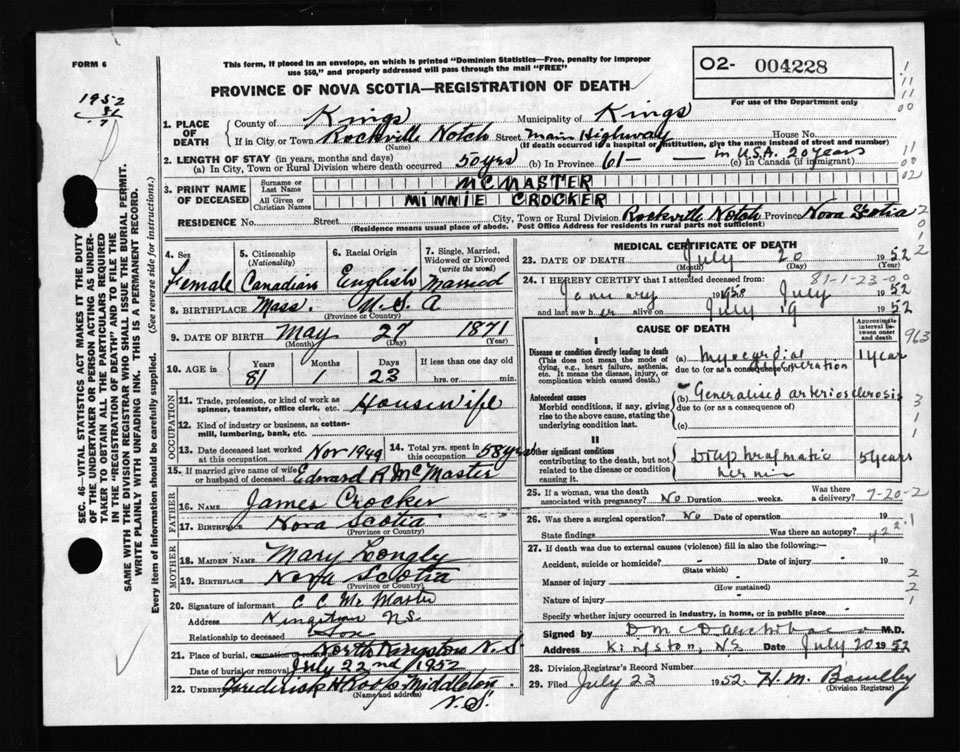 FORM 6
This form, if placed in an envelope, on which is printed "Dominion Statistics—Free, penalty for improper
use $50," and properly addressed will pass through the mail "FREE"
O2- 004228
For use of the Department only
PROVINCE OF NOVA SCOTIA—REGISTRATION OF DEATH
1952
81
1. PLACE OF DEATH
County of Kings Municipality of Kings
If in City or Town Rockville Notch Street Main Highway House No.
(Name) (If death occurred in a hospital or institution, give the name instead of street and number)
2. LENGTH OF STAY (in years, months and days) in USA. 20 years
(a) In City, Town or Rural Division where death occurred 50 yrs (b) In Province 61 — (c) In Canada (if immigrant)
3. PRINT NAME OF DECEASED
Surname or Last Name MCMASTER
All Given or Christian Names MINNIE CROCKER
RESIDENCE No. Street City, Town or Rural Division Rockville Notch Province Nova Scotia
(Residence means usual place of abode. Post Office Address for residents in rural parts not sufficient)
4. Sex Female
5. Citizenship (Nationality) Canadian
6. Racial Origin English
7. Single, Married, Widowed or Divorced (write the word) Married
8. BIRTHPLACE Mass. U.S.A
(Province or Country)
9. DATE OF BIRTH May 27 1871
(Month) (Day) (Year)
10. AGE in Years 81 Months 1 Days 23 If less than one day old
hrs. or min.
OCCUPATION
11. Trade, profession, or kind of work as spinner, teamster, office clerk, etc. Housewife
12. Kind of industry or business, as cotton-mill, lumbering, bank, etc.
13. Date deceased last worked at this occupation Nov 1949
14. Total yrs. spent in this occupation 58 yrs
15. If married give name of wife or husband of deceased Edward R McMaster
FATHER
16. NAME James Crocker
17. BIRTHPLACE Nova Scotia
(Province or Country)
MOTHER
18. MAIDEN NAME Mary Longly
19. BIRTHPLACE Nova Scotia
(Province or Country)
20. Signature of informant C C McMaster
Address Kingston NS.
Relationship to deceased Son
21. Place of burial, cremation or removal North Kingston N.S.
Date of burial or removal July 22nd/1952
22. UNDERTAKER Frederick H Roop Middleton N.S.
(Name and address)
MEDICAL CERTIFICATE OF DEATH
23. DATE OF DEATH July 20 1952
(Month) (Day) (Year)
81-1-23
24. I HEREBY CERTIFY that I attended deceased from:
January 19 July 1952
and last saw her alive on July 19 1952
CAUSE OF DEATH
Approximate interval between onset and death
963
I
Disease or condition directly leading to death
(This does not mean the mode of dying, e.g., heart failure, asthenia, etc. It means the disease, injury, or complication which caused death.)
(a) Myocardial
due to (or as a consequence of)
1 year
Antecedent causes
Morbid conditions, if any, giving rise to the above cause, stating the underlying condition last.
(b) Generalised arteriosclerosis
due to (or as a consequence of)
(c)
II
Other significant conditions contributing to the death, but not related to the disease or condition causing it.
hernia
5 years
25. If a woman, was the death associated with pregnancy? No Duration weeks. Was there a delivery? 7-20-2
26. Was there a surgical operation? No Date of operation 19
State findings Was there an autopsy?
27. If death was due to external causes (violence) fill in also the following:—
Accident, suicide or homicide? Date of injury 19
(State which)
Manner of injury
(How sustained)
Nature of injury
Specify whether injury occurred in industry, in home, or in public place
Signed by M.D.
Address Kingston, NS Date July 20 1952
28. Division Registrar's Record Number
29. Filed July 23 1952. H. M. Bowlby
(Division Registrar)
SEC. 46—VITAL STATISTICS ACT MAKES IT THE DUTY
OF THE UNDERTAKER OR PERSON ACTING AS UNDER-
TAKER TO OBTAIN ALL THE PARTICULARS REQUIRED
IN THE "REGISTRATION OF DEATH" AND TO FILE THE
SAME WITH THE DIVISION REGISTRAR WHO SHALL ISSUE THE BURIAL PERMIT.
WRITE PLAINLY WITH UNFADING INK. THIS IS A PERMANENT RECORD.
Every item of information should be carefully supplied. (See reverse side for instructions.)